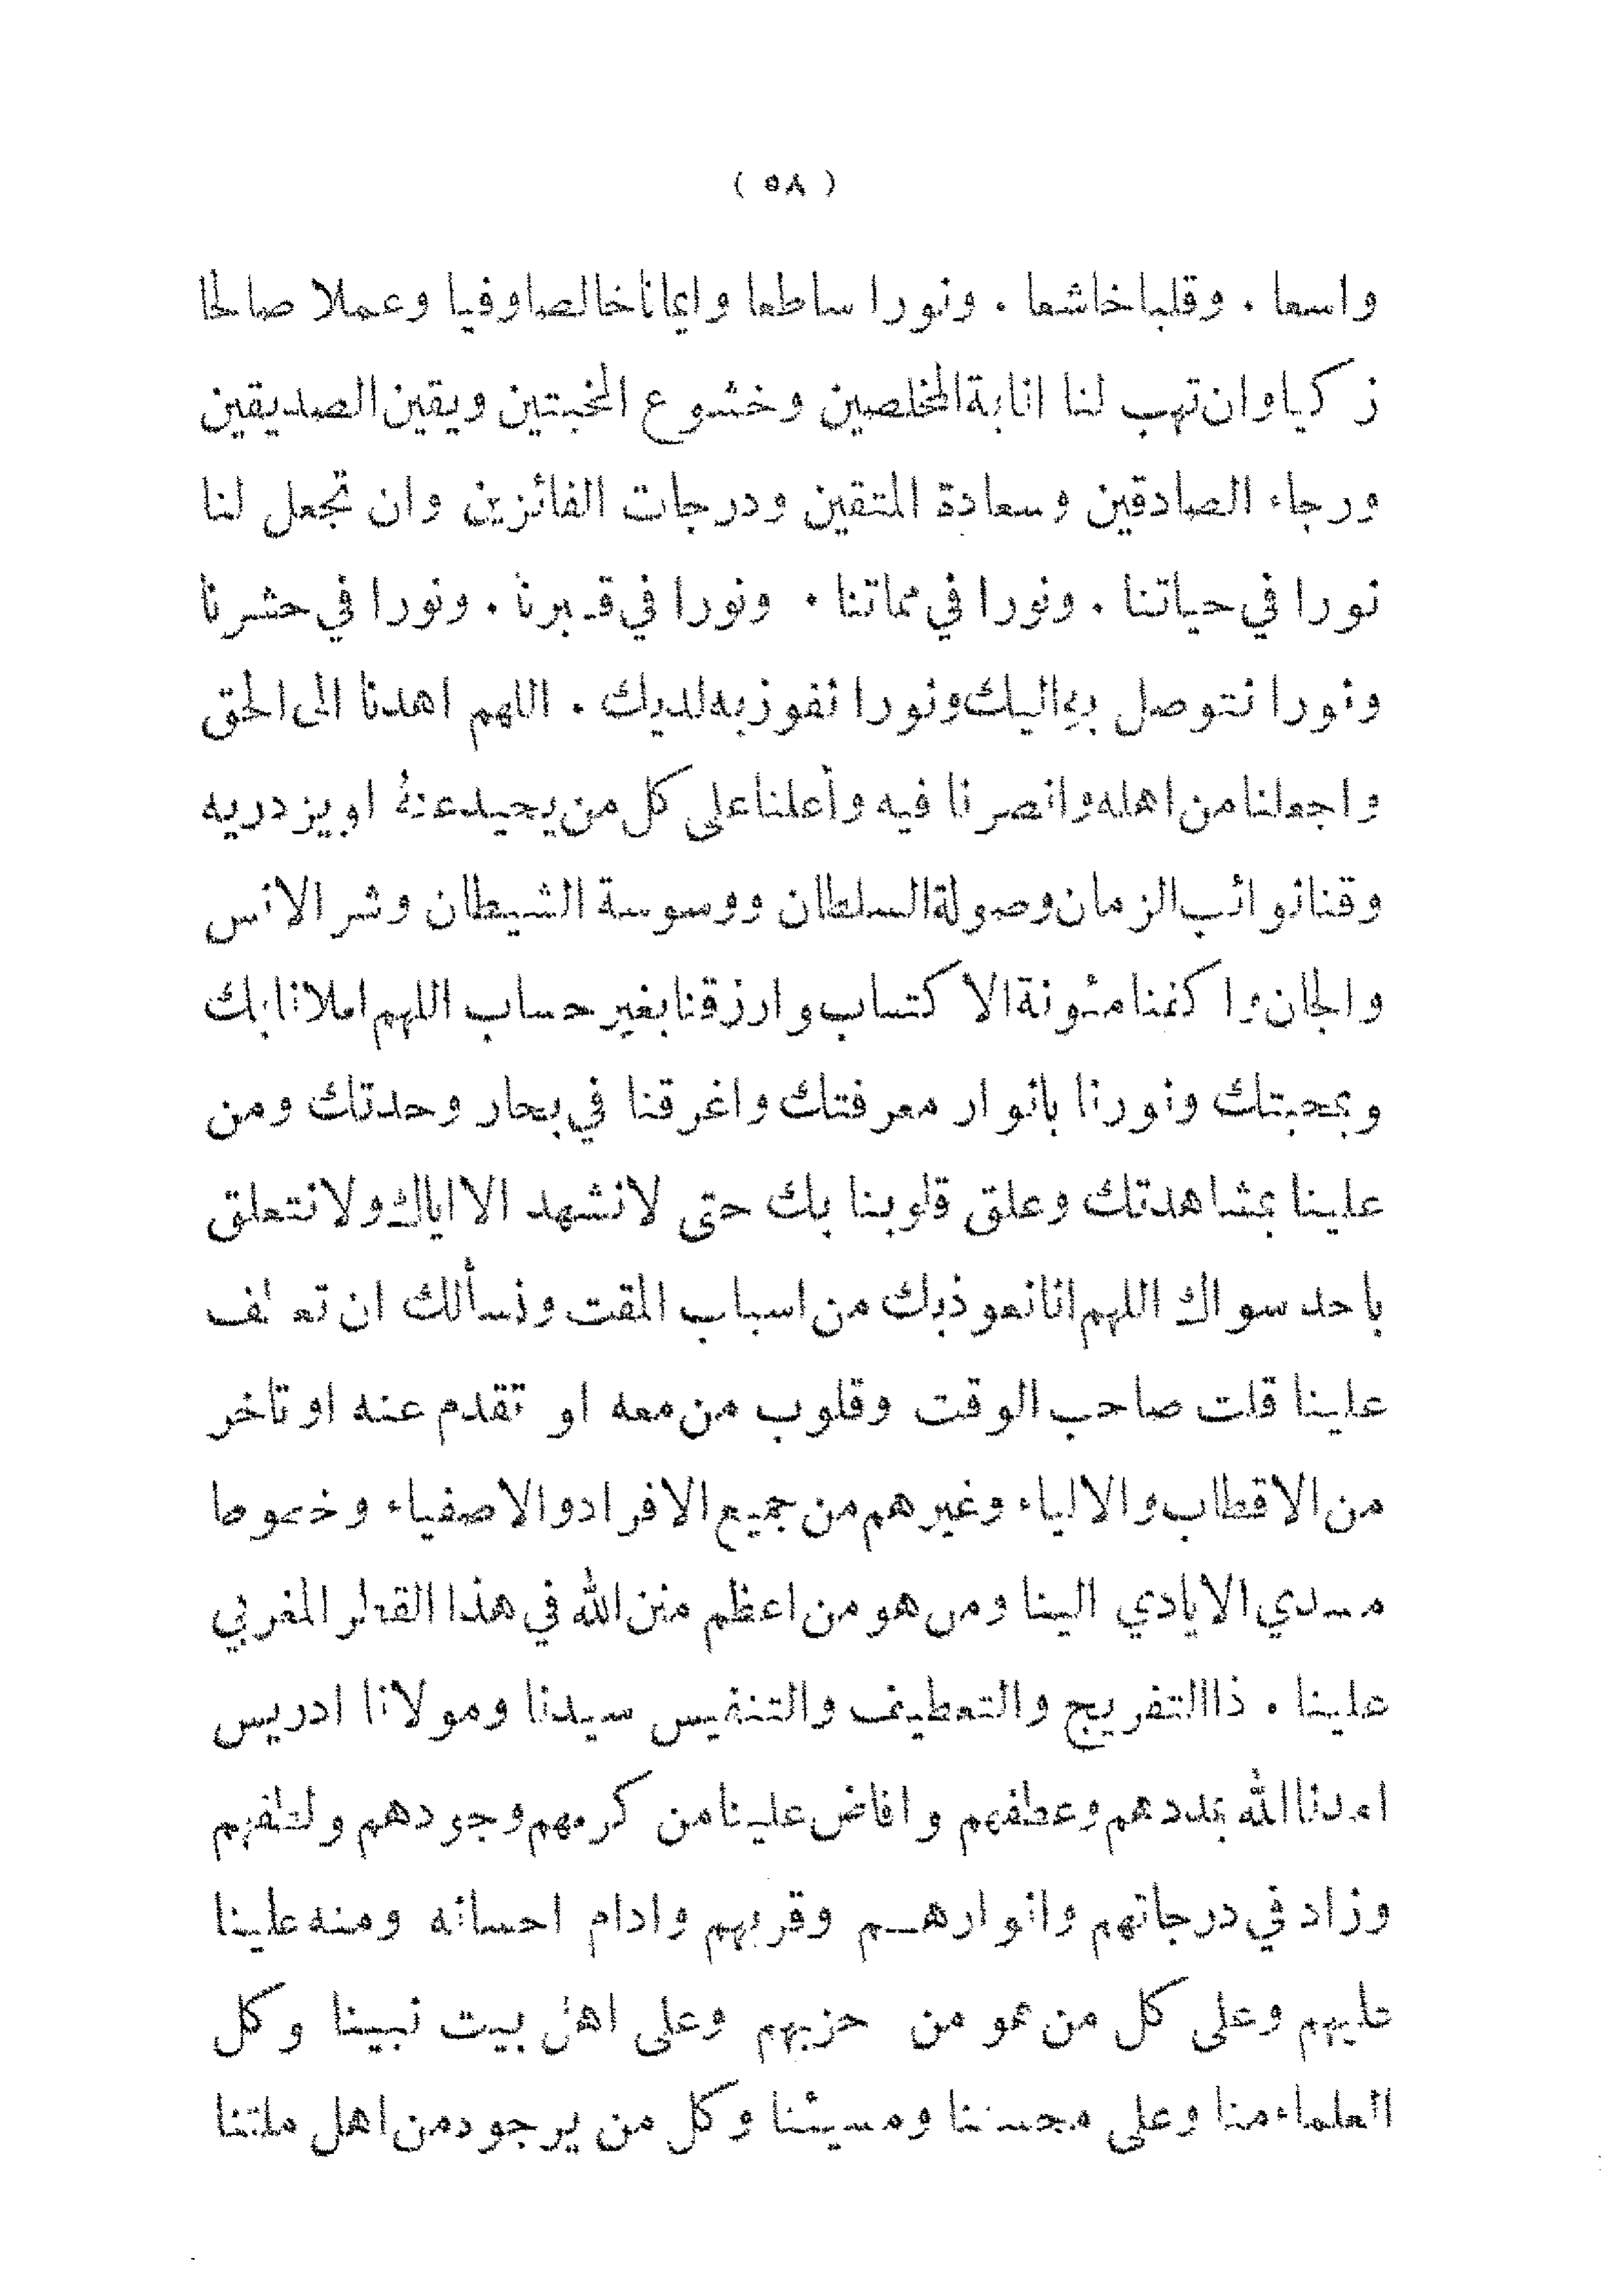 ( ٥٨ )
واسعا . وقلبا خاشعا . ونورا ساطعا وايمانا خالصا وفيا وعملا صالحا
زكيا وان تهب لنا انابة المخلصين وخشوع المخبتين ويقين الصديقين
ورجاء الصادقين وسعادة المتقين ودرجات الفائزين وان تجعل لنا
نورا في حياتنا . ونورا في مماتنا . ونورا في قبرنا . ونورا في حشرنا
ونورا نتوصل به اليك ونورا نفوز به لديك . اللهم اهدنا الى الحق
واجعلنا من اهله وانصرنا فيه وأعلنا على كل من يحيد عنه او يزدريه
وقنا نوائب الزمان وصولة السلطان ووسوسة الشيطان وشر الانس
والجان واكفنا مئونة الاكتساب وارزقنا بغير حساب اللهم املانا بك
وبمحبتك ونورنا بانوار معرفتك واغرقنا في بحار وحدتك ومن
علينا بمشاهدتك وعلق قلوبنا بك حتى لا نشهد الا اياك ولا نتعلق
باحد سواك اللهم انا نعوذ بك من اسباب المقت ونسألك ان تعطف
علينا قلت صاحب الوقت وقلوب من معه او تقدم عنه او تاخر
من الاقطاب والالياء وغيرهم من جميع الافراد والاصفياء وخصوصا
مسدي الايادي الينا ومن هو من اعظم منن الله في هذا القطر المغربي
علينا . ذا التفريج والتعطيف والتنفيس سيدنا ومولانا ادريس
امدنا الله بمددهم وعطفهم وافاض علينا من كرمهم وجودهم ولطفهم
وزاد في درجاتهم وانوارهم وقربهم وادام احسانه ومنه علينا
عليهم وعلى كل من هو من حزبهم وعلى اهل بيت نبينا وكل
العلماء منا وعلى محسننا ومسيئنا وكل من يرجوه من اهل ملتنا